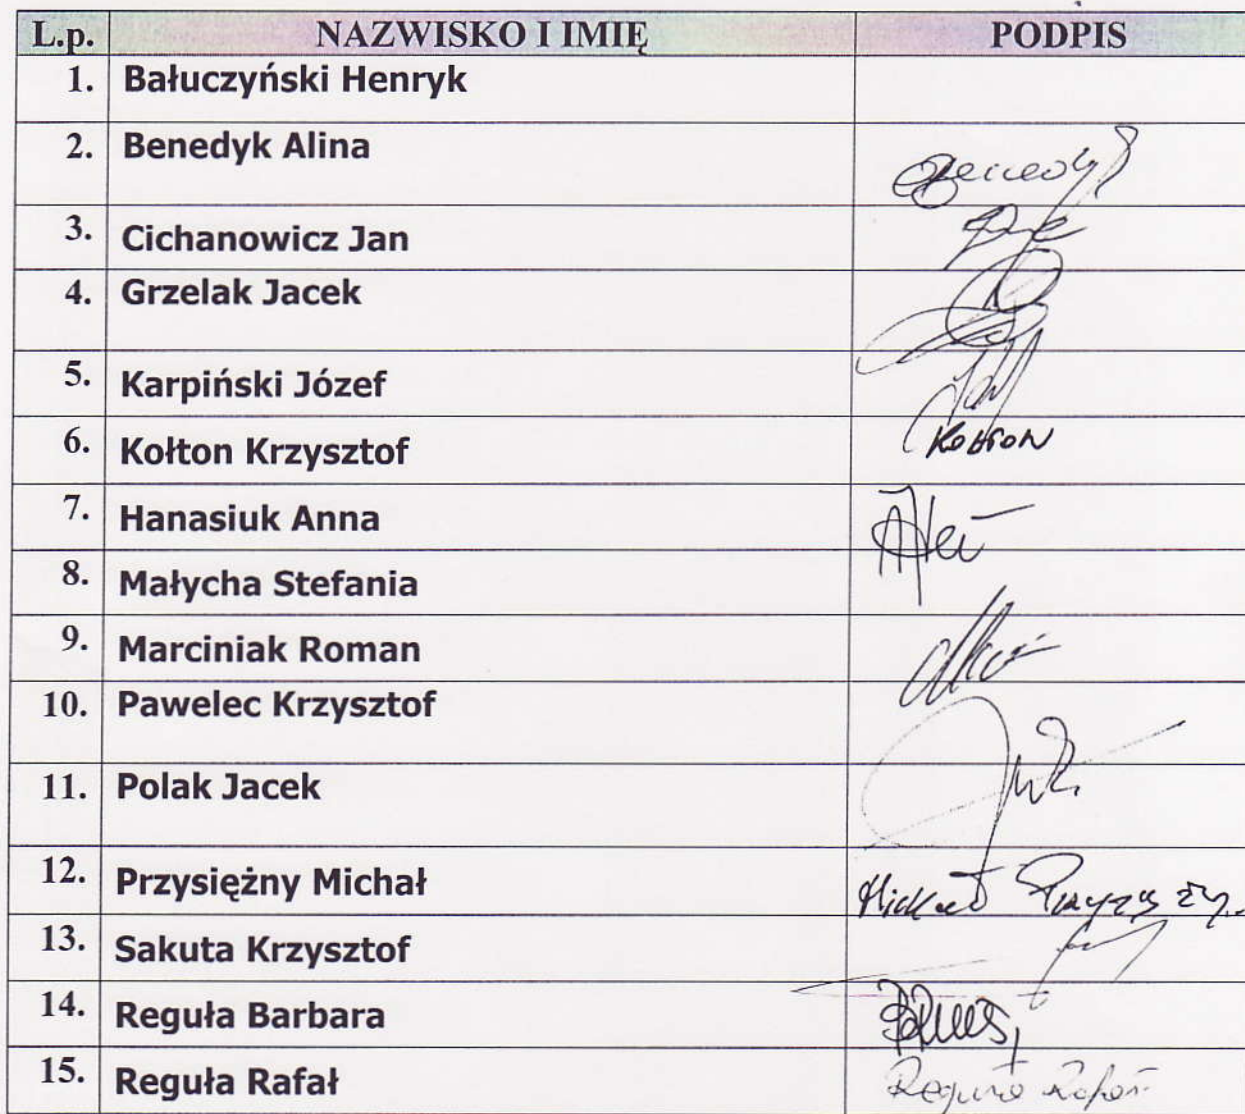 L.p. NAZWISKO I IMIĘ PODPIS
1. Bałuczyński Henryk
2. Benedyk Alina
3. Cichanowicz Jan
4. Grzelak Jacek
5. Karpiński Józef
6. Kołton Krzysztof Kołton
7. Hanasiuk Anna
8. Małycha Stefania
9. Marciniak Roman
10. Pawelec Krzysztof
11. Polak Jacek
12. Przysiężny Michał Michał
13. Sakuta Krzysztof
14. Reguła Barbara
15. Reguła Rafał Reguła Rafał